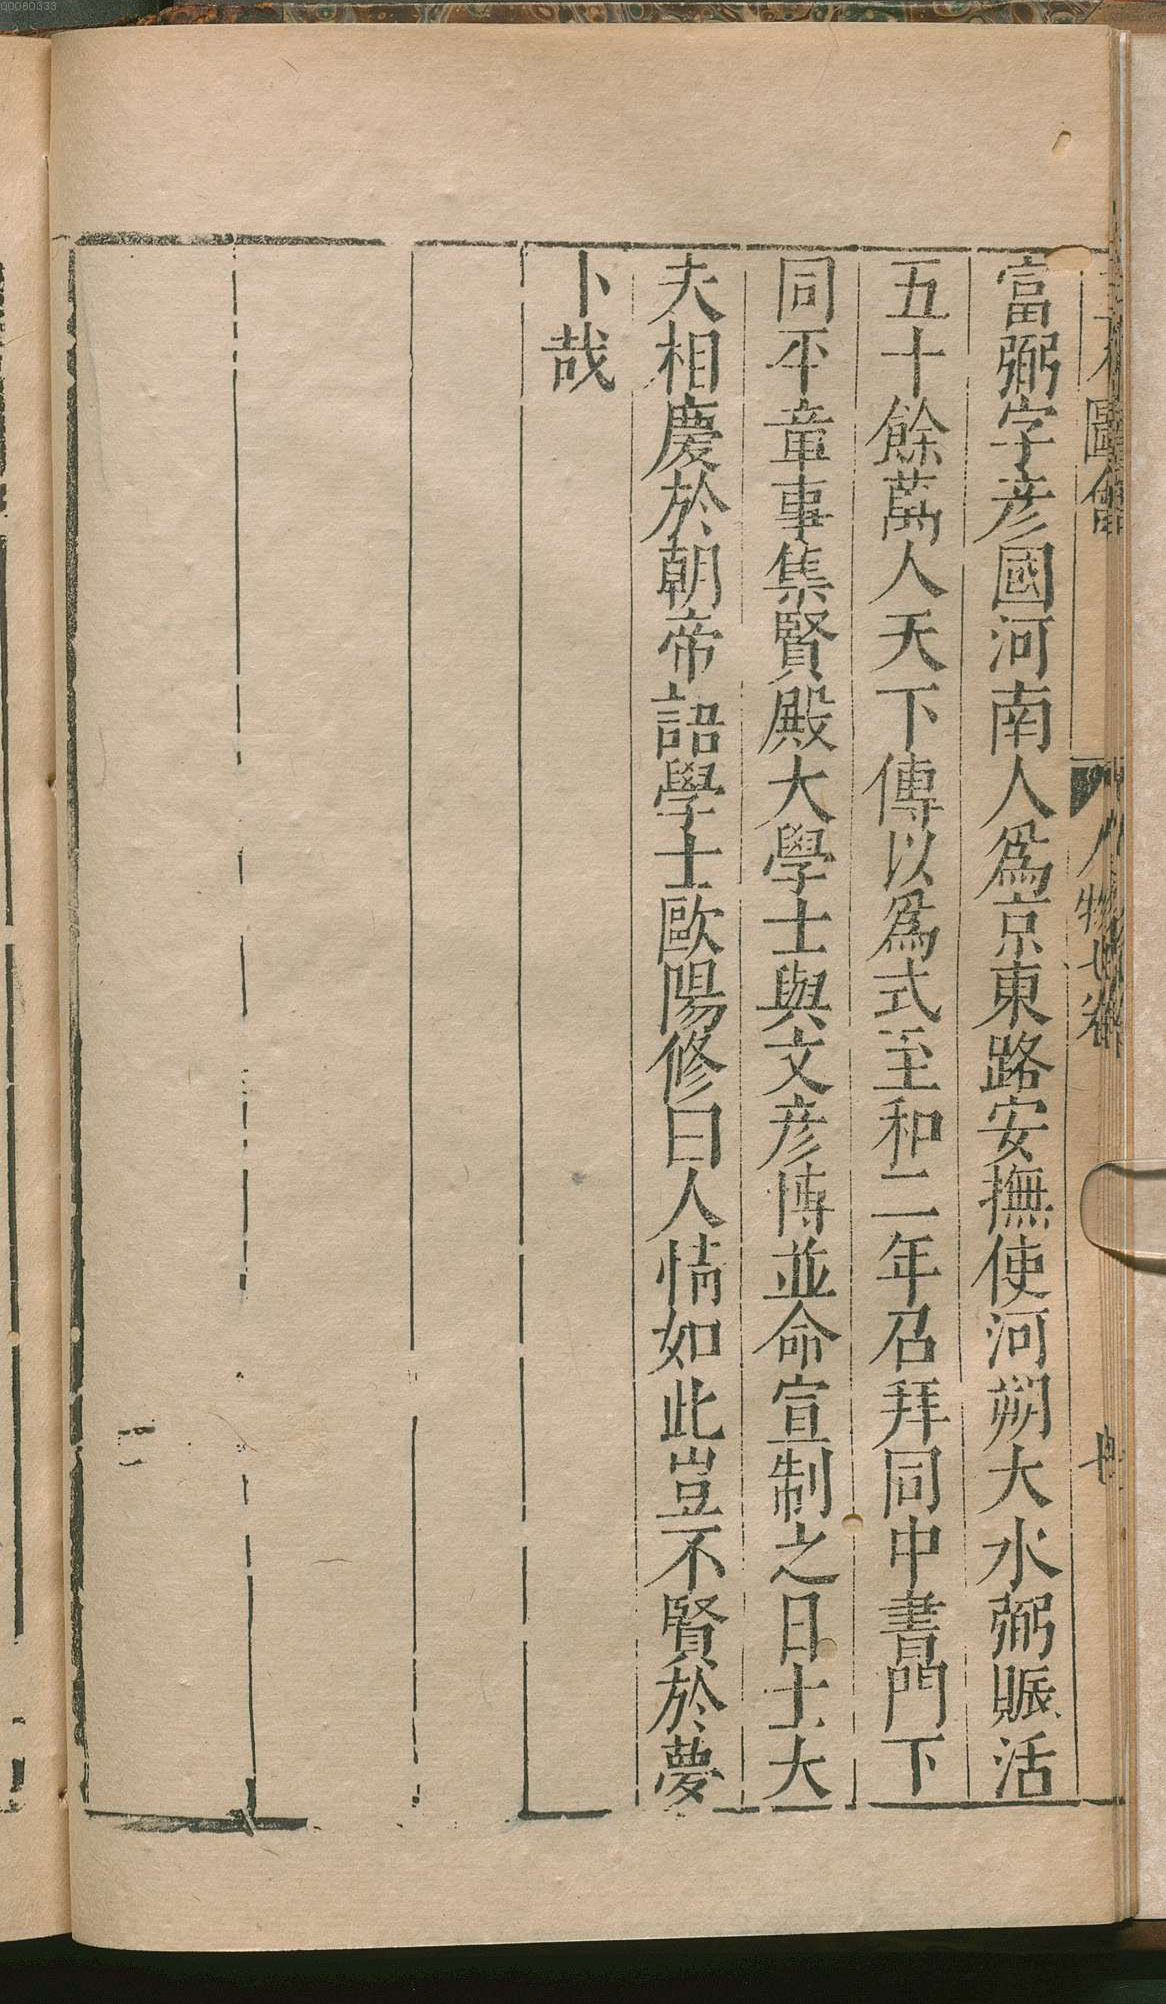 富弼字彦國河南人爲京東路安撫使河朔大水弼賑活
五十餘萬人天下傳以爲式至和二年召拜同中書門下
同平章事集賢殿大學士與文彦博並命宣制之日士大
夫相慶於朝帝語學士歐陽修曰人情如此豈不賢於夢
卜哉
00060333